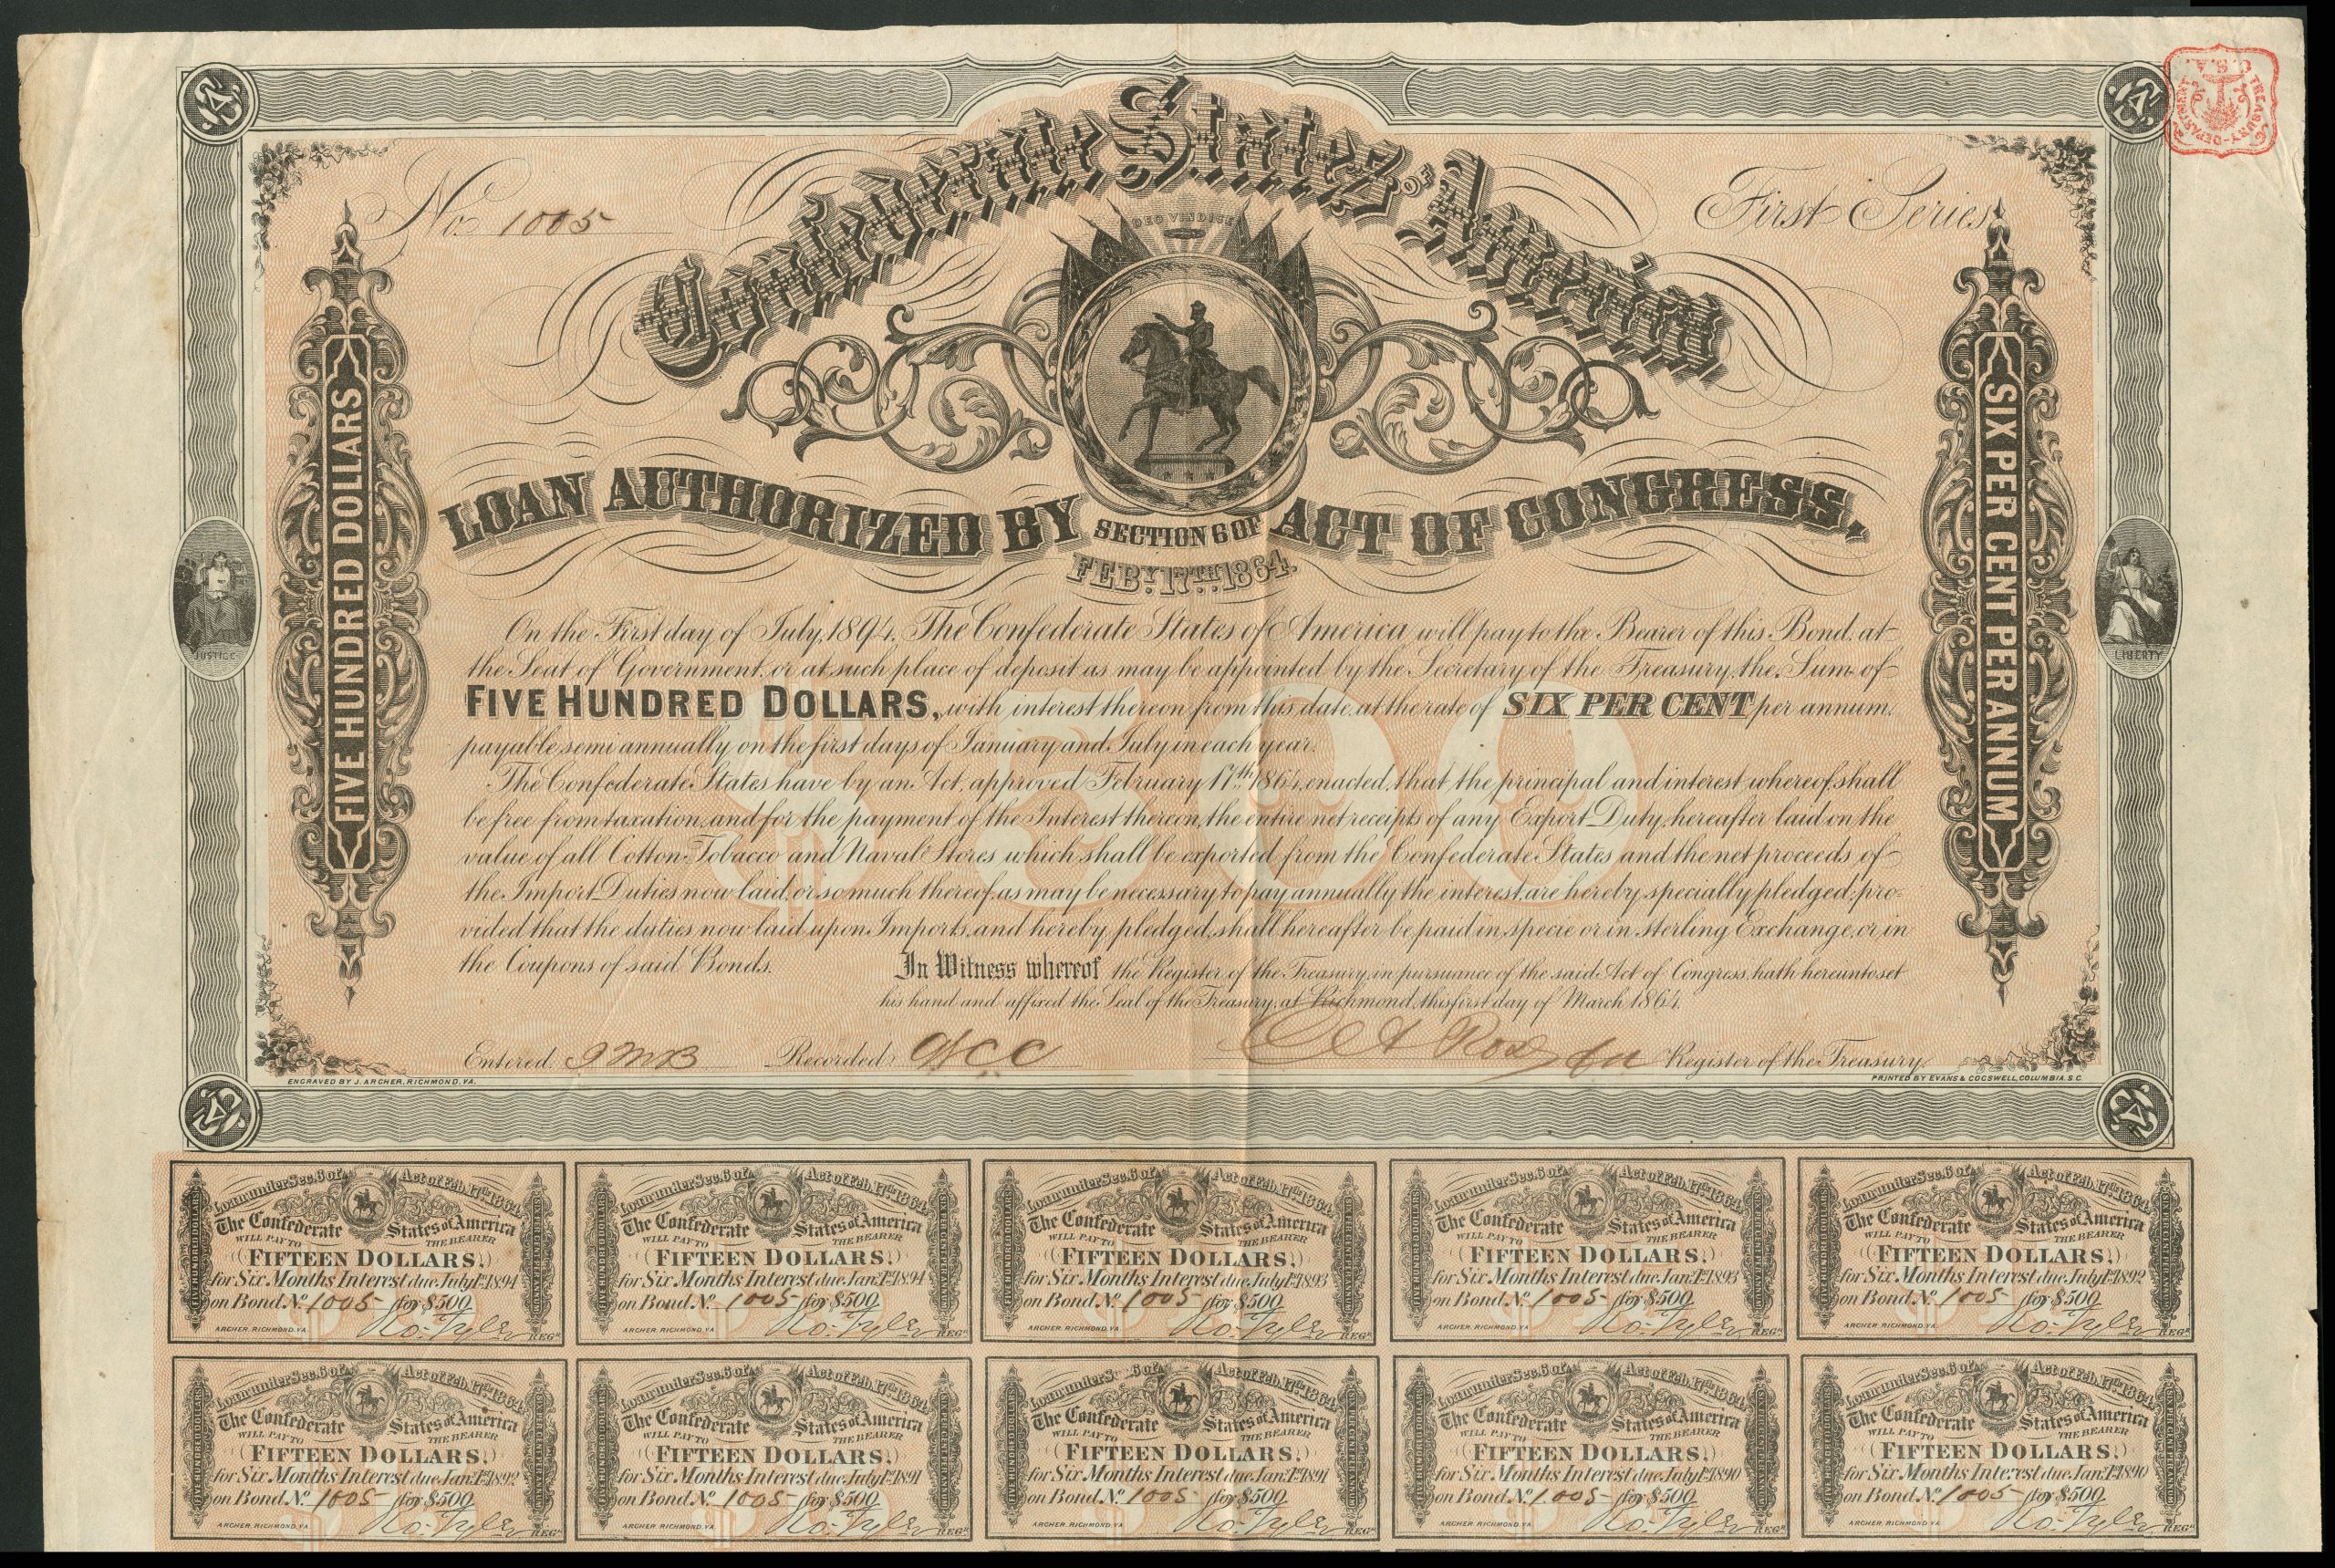 No. 1005
Confederate States of America
First Series.
DEO VINDICE
TREASURY-DEPARTMENT
C.S.A.
FIVE HUNDRED DOLLARS
SIX PER CENT PER ANNUM
LOAN AUTHORIZED BY SECTION 6 OF ACT OF CONGRESS,
FEBY. 17TH. 1864.
JUSTICE
LIBERTY
On the First day of July, 1894, The Confederate States of America will pay to the Bearer of this Bond, at
the Seat of Government, or at such place of deposit as may be appointed by the Secretary of the Treasury, the Sum of
FIVE HUNDRED DOLLARS, with interest thereon from this date, at the rate of SIX PER CENT per annum,
payable semi annually on the first days of January and July in each year.
The Confederate States have by an Act, approved February 17th. 1864, enacted, that the principal and interest whereof shall
be free from taxation, and for the payment of the Interest thereon, the entire net receipts of any Export Duty, hereafter laid on the
value of all Cotton, Tobacco and Naval Stores which shall be exported from the Confederate States and the net proceeds of
the Import Duties now laid, or so much thereof, as may be necessary to pay annually the interest, are hereby specially pledged; pro-
vided that the duties now laid upon Imports, and hereby pledged, shall hereafter be paid in specie or in sterling Exchange, or in
the Coupons of said Bonds.
In Witness whereof the Register of the Treasury, in pursuance of the said Act of Congress, hath hereunto set
his hand and affixed the Seal of the Treasury, at Richmond, this first day of March 1864.
$500
Entered, Recorded, Register of the Treasury.
ENGRAVED BY J. ARCHER, RICHMOND, VA.
PRINTED BY EVANS & COGSWELL, COLUMBIA, S.C.
Loan under Sec. 6 of Act of Feb. 17th 1864.
The Confederate States of America
WILL PAY TO THE BEARER
FIFTEEN DOLLARS,
for Six Months Interest due July 1st 1894
on Bond No. 1005 for $500
Ro. Tyler REGR
ARCHER, RICHMOND, VA
Loan under Sec. 6 of Act of Feb. 17th 1864.
The Confederate States of America
WILL PAY TO THE BEARER
FIFTEEN DOLLARS,
for Six Months Interest due Jan. 1st 1894
on Bond No. 1005 for $500
Ro. Tyler REGR
ARCHER, RICHMOND, VA
Loan under Sec. 6 of Act of Feb. 17th 1864.
The Confederate States of America
WILL PAY TO THE BEARER
FIFTEEN DOLLARS,
for Six Months Interest due July 1st 1893
on Bond No. 1005 for $500
Ro. Tyler REGR
ARCHER, RICHMOND, VA
Loan under Sec. 6 of Act of Feb. 17th 1864.
The Confederate States of America
WILL PAY TO THE BEARER
FIFTEEN DOLLARS,
for Six Months Interest due Jan. 1st 1893
on Bond No. 1005 for $500
Ro. Tyler REGR
ARCHER, RICHMOND, VA
Loan under Sec. 6 of Act of Feb. 17th 1864.
The Confederate States of America
WILL PAY TO THE BEARER
FIFTEEN DOLLARS,
for Six Months Interest due July 1st 1892
on Bond No. 1005 for $500
Ro. Tyler REGR
ARCHER, RICHMOND, VA
Loan under Sec. 6 of Act of Feb. 17th 1864.
The Confederate States of America
WILL PAY TO THE BEARER
FIFTEEN DOLLARS,
for Six Months Interest due Jan. 1st 1892
on Bond No. 1005 for $500
Ro. Tyler REGR
ARCHER, RICHMOND, VA
Loan under Sec. 6 of Act of Feb. 17th 1864.
The Confederate States of America
WILL PAY TO THE BEARER
FIFTEEN DOLLARS,
for Six Months Interest due July 1st 1891
on Bond No. 1005 for $500
Ro. Tyler REGR
ARCHER, RICHMOND, VA
Loan under Sec. 6 of Act of Feb. 17th 1864.
The Confederate States of America
WILL PAY TO THE BEARER
FIFTEEN DOLLARS,
for Six Months Interest due Jan. 1st 1891
on Bond No. 1005 for $500
Ro. Tyler REGR
ARCHER, RICHMOND, VA
Loan under Sec. 6 of Act of Feb. 17th 1864.
The Confederate States of America
WILL PAY TO THE BEARER
FIFTEEN DOLLARS,
for Six Months Interest due July 1st 1890
on Bond No. 1005 for $500
Ro. Tyler REGR
ARCHER, RICHMOND, VA
Loan under Sec. 6 of Act of Feb. 17th 1864.
The Confederate States of America
WILL PAY TO THE BEARER
FIFTEEN DOLLARS,
for Six Months Interest due Jan. 1st 1890
on Bond No. 1005 for $500
Ro. Tyler REGR
ARCHER, RICHMOND, VA